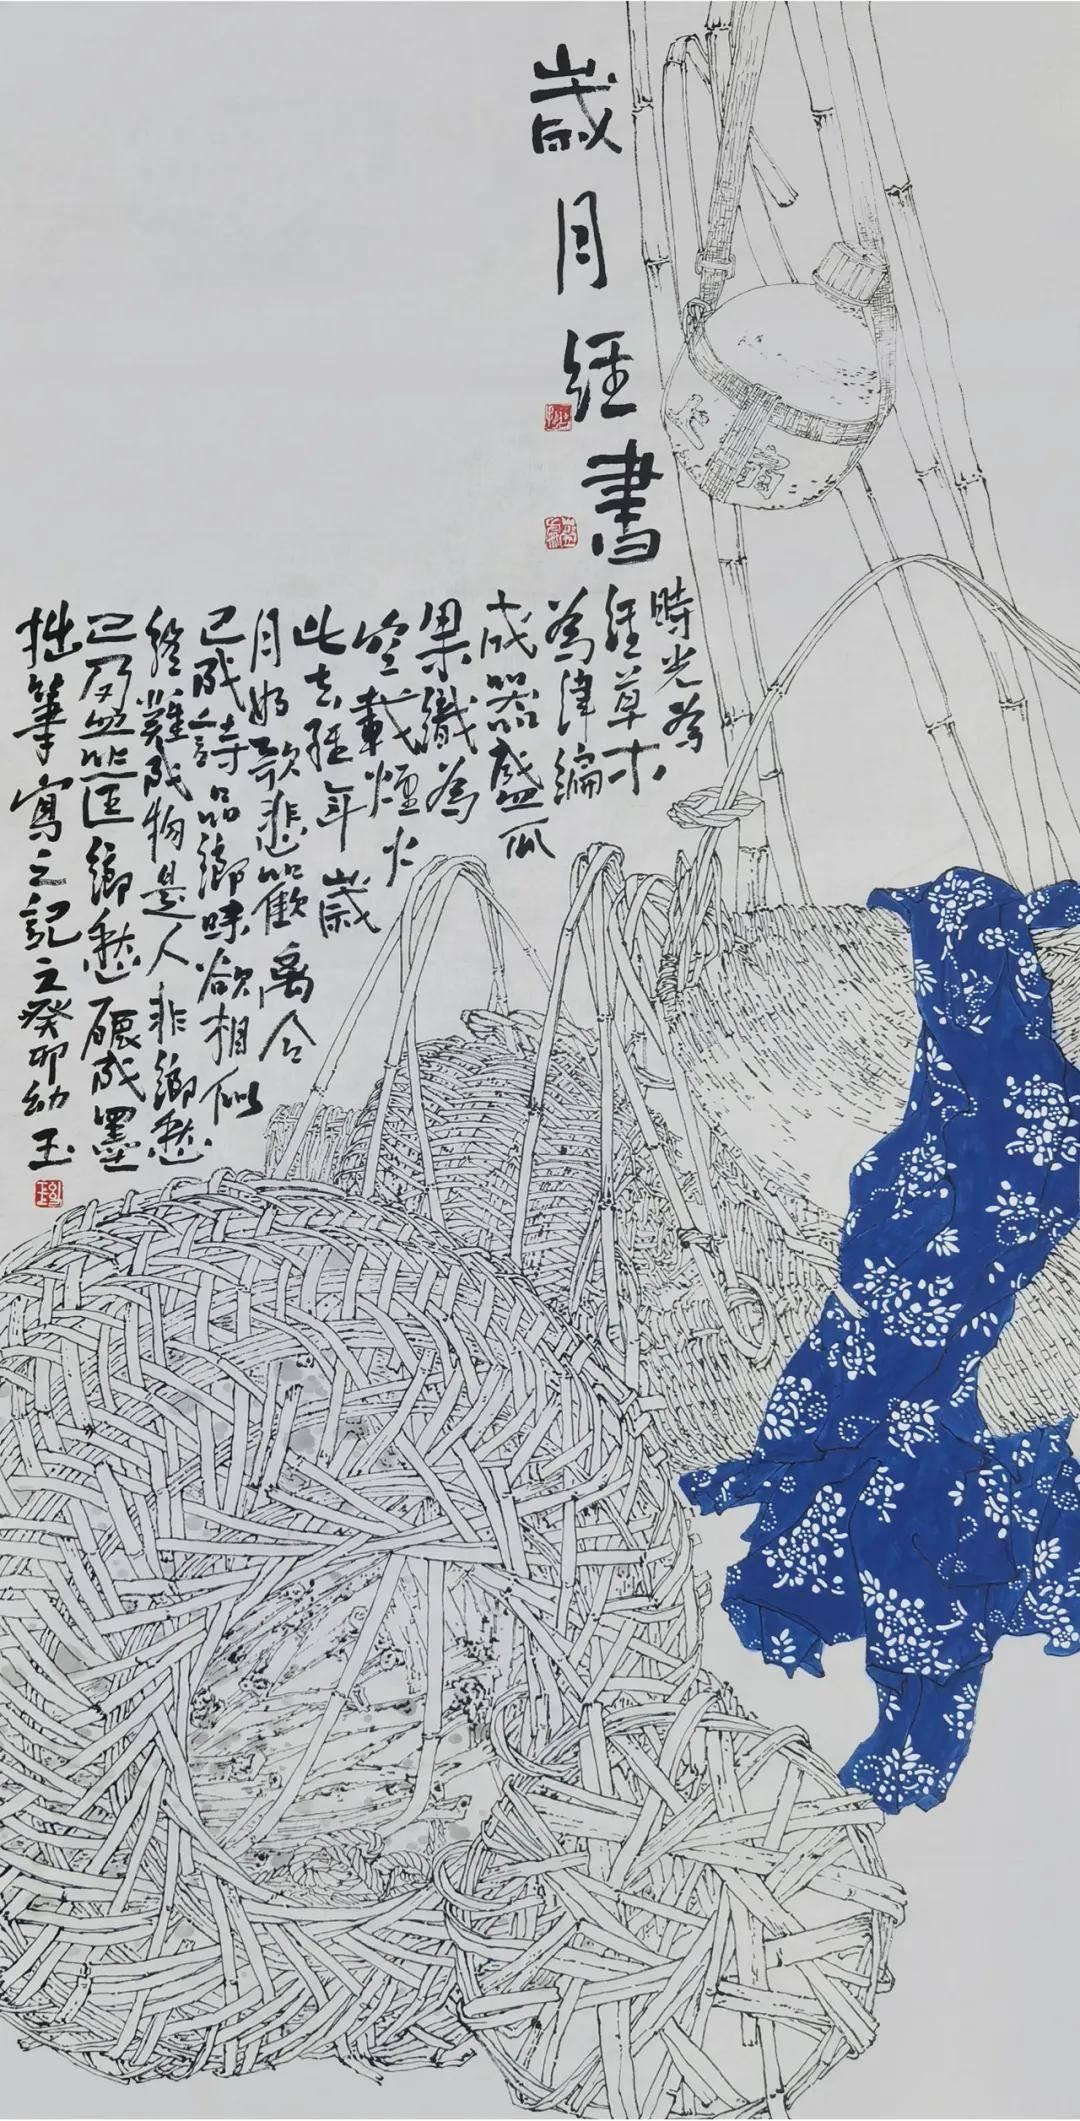 歲月經書
時光為
經草木
為津編
成器盛瓜
果織為
空載煙火
此去經年歲
月如歌悲歡离合
已成詩品鄉味欲相似
終難成物是人非鄉愁
已馬鄉愁碾成墨
拙筆寫之記之癸卯幼玉